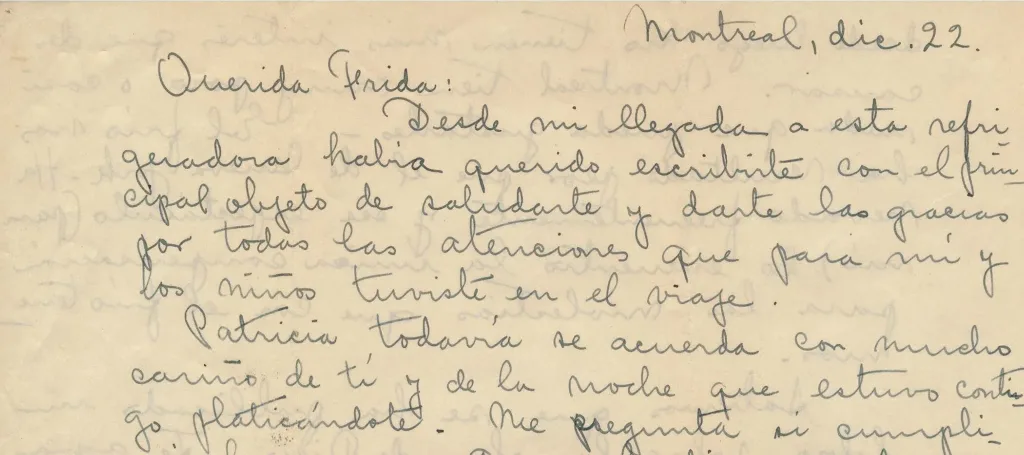 Montreal, dic. 22.
Querida Frida:
Desde mi llegada a esta refri
geradora habia querido escribirte con el prin-
cipal objeto de saludarte y darte las gracias
por todas las atenciones que para mí y
los niños tuviste en el viaje.
Patricia todavía se acuerda con mucho
cariño de tí y de la noche que estuvo conti-
go platicándote. Me pregunta si cumpli-